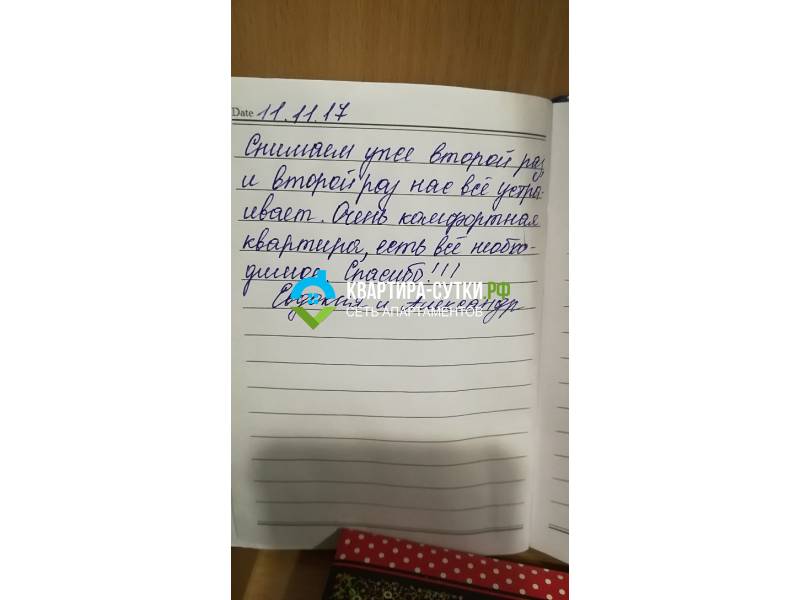 Date 11.11.17
Снимаем уже второй раз,
и второй раз нас всё устра-
ивает. Очень комфортная
квартира, есть всё необхо-
димое. Спасибо!!!
КВАРТИРА-СУТКИ.РФ
Евдокия и Александр
СЕТЬ АПАРТАМЕНТОВ